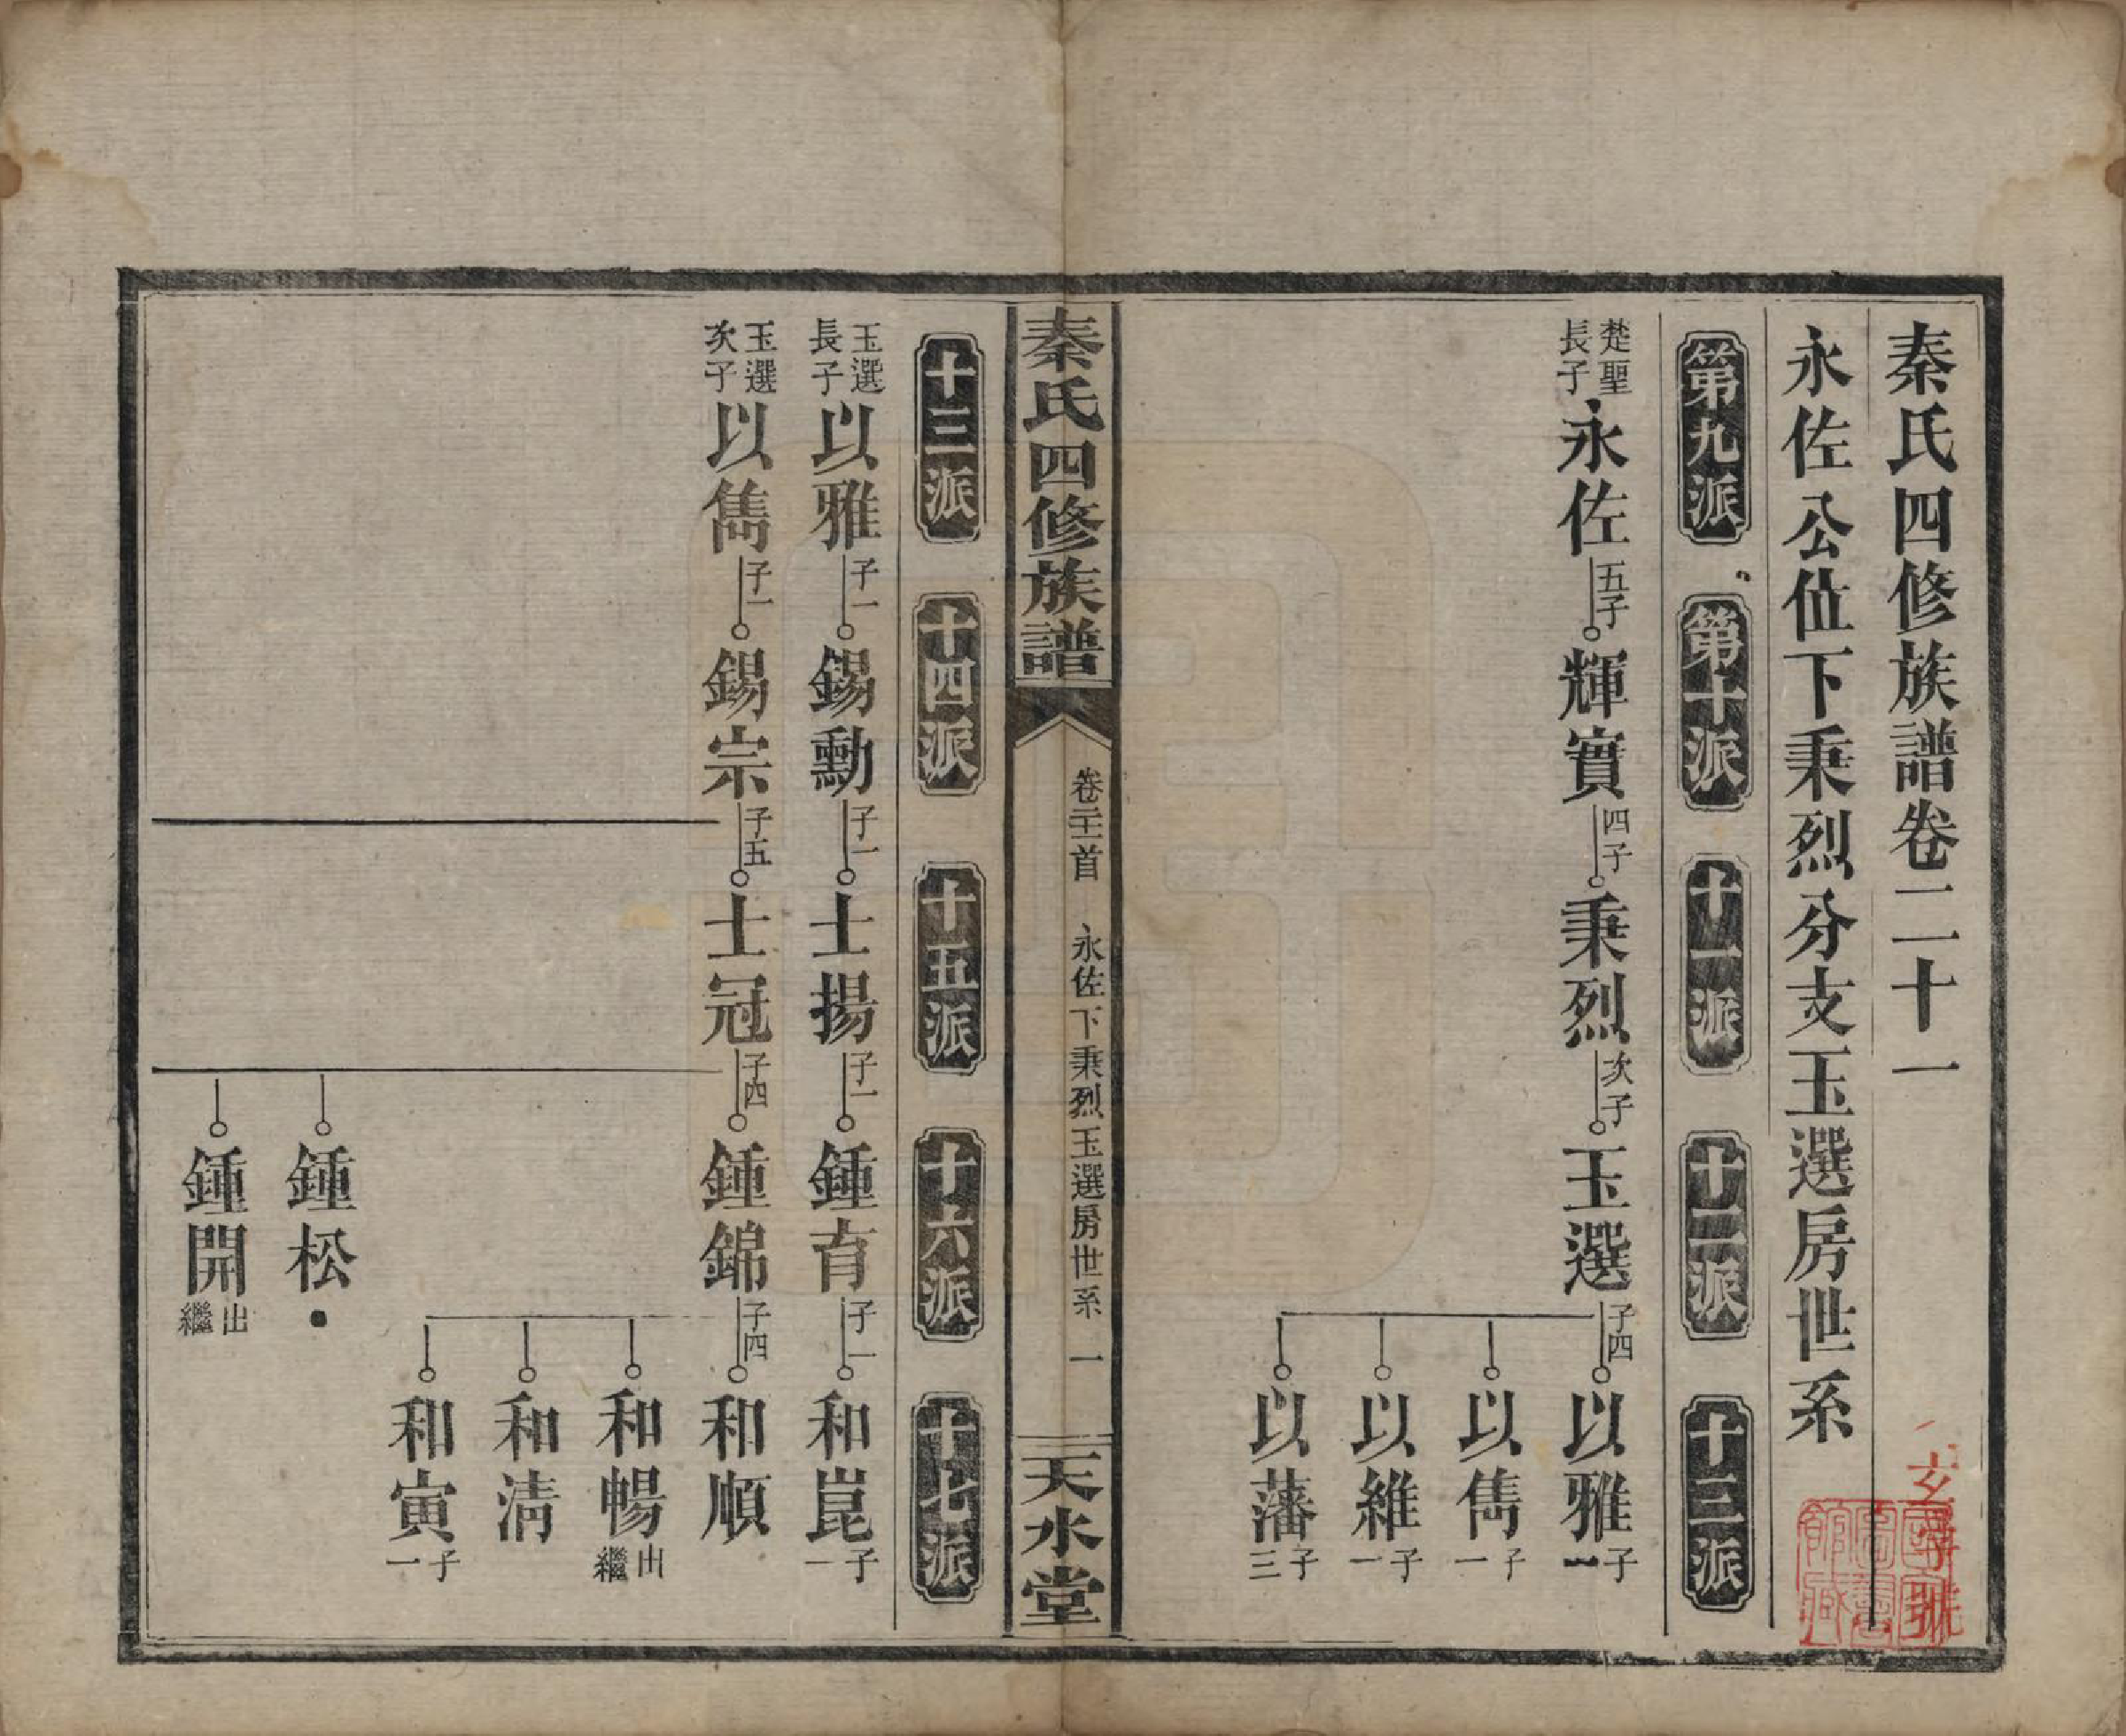 秦氏四修族譜卷二十一
永佐公位下秉烈分支玉選房世系
第九派 第十派 十一派 十二派 十三派
楚聖長子 永佐 五子 輝實 四子 秉烈 次子 玉選 子四 以雅 子一
以雋 子一
以維 子一
以藩 子三
秦氏四修族譜 卷二十一首 永佐下秉烈玉選房世系 一 天水堂
十三派 十四派 十五派 十六派 十七派
玉選長子 以雅 子一 錫勳 子一 士揚 子一 鍾育 子一 和崑 子一
玉選次子 以雋 子一 錫宗 子五 士冠 子四 鍾錦 子四 和順
和暢 出繼
和清
和寅 子一
鍾松
鍾開 出繼
國家圖書館藏
玄字號